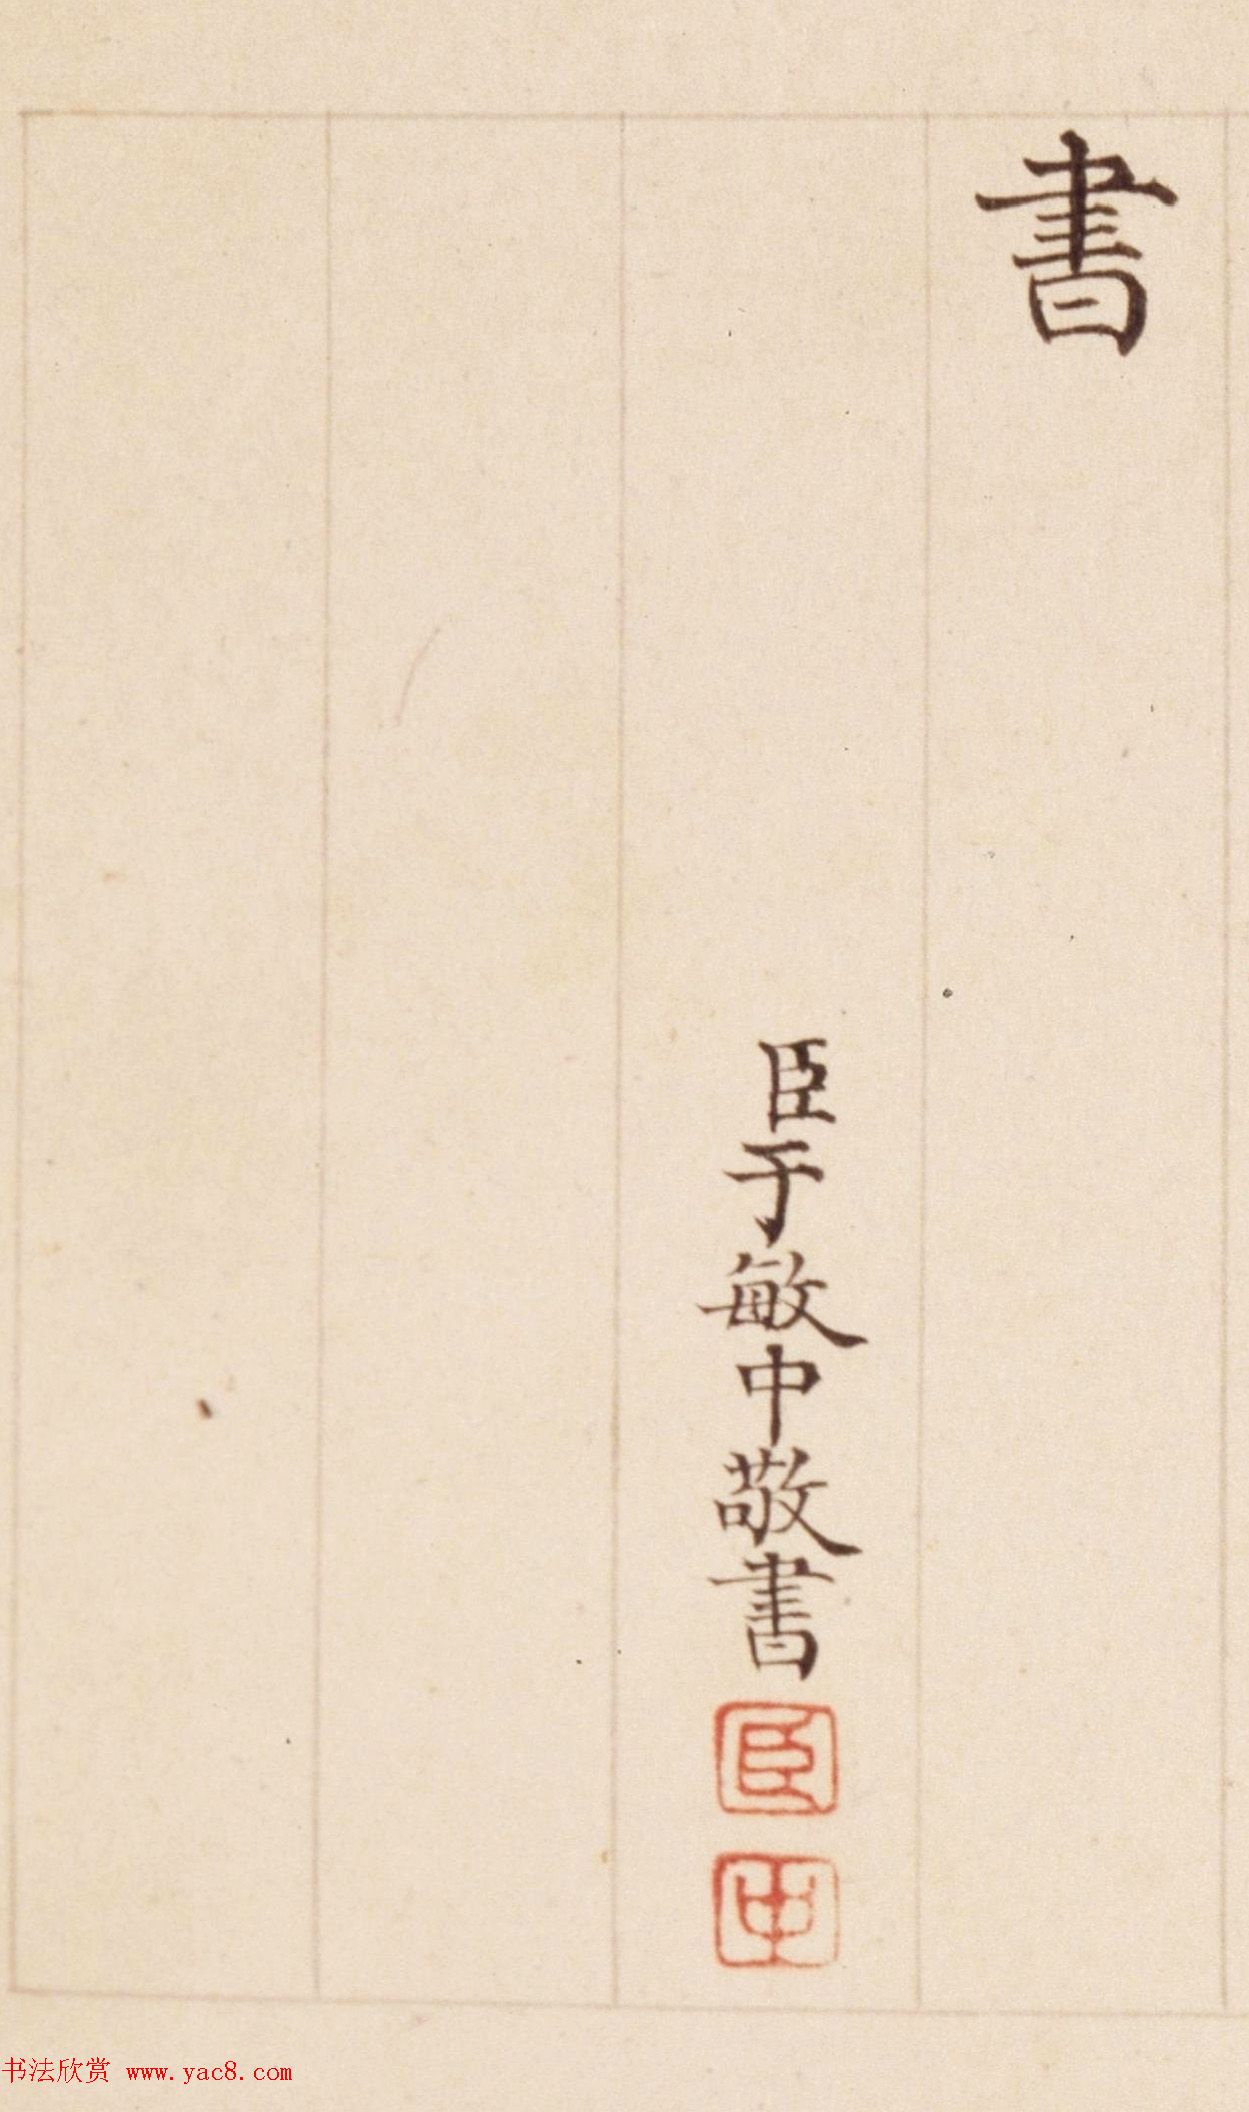 書
臣于敏中敬書
臣
中
书法欣赏 www.yac8.com